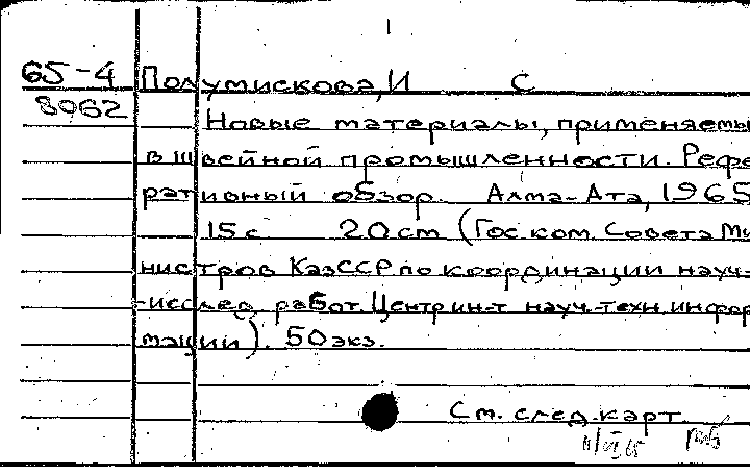 1
65-4 Полумискова, И С
8962
Новые материалы, применяемы
в швейной промышленности. Рефе
ративный обзор. Алма-Ата, 1965
15 с 20 см (Гос. ком. Совета Ми
нистров КазССР по координации науч-
-исслед. работ. Центр ин-т науч.-техн. инфор
мации). 50 экз.
См. след. карт